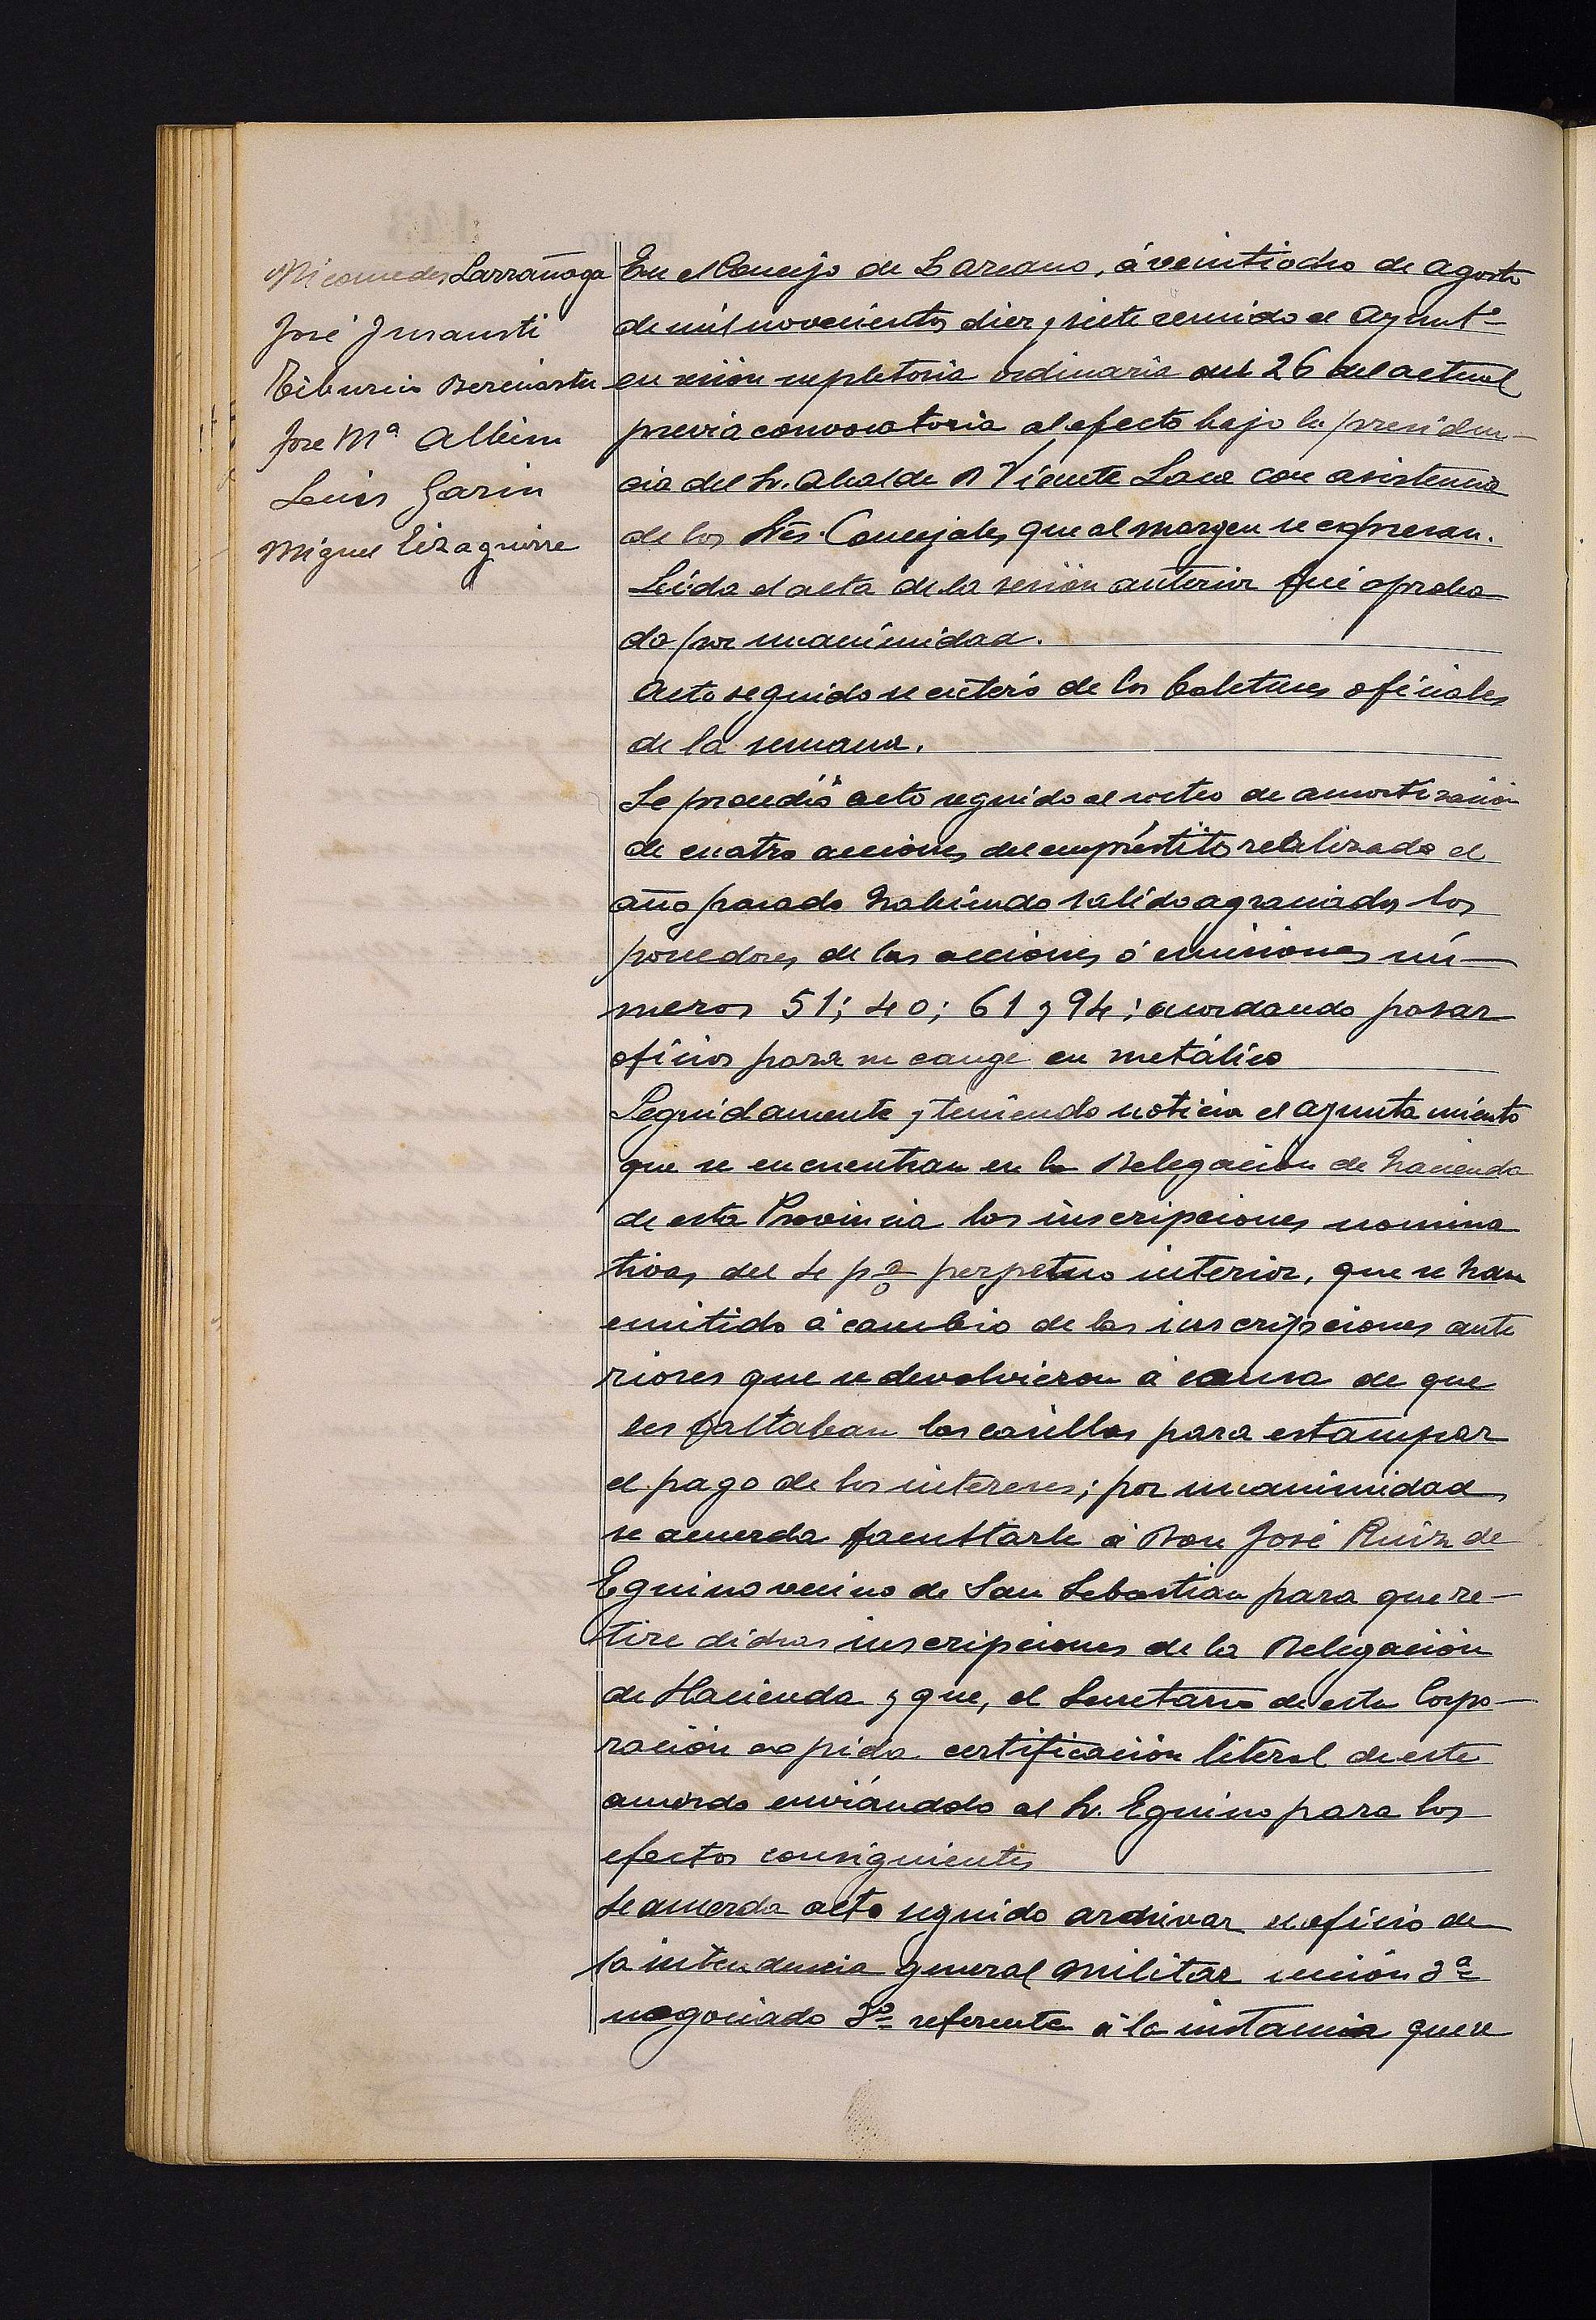 Nicomedes Larrañaga
José Insausti
Tiburcio Bereciartu
Jose Mª Albisu
Luis Garin
Miguel Eizaguirre
En el Concejo de Lazcano, á veintiocho de agosto
de mil novecientos diez y siete reunido el Ayuntº
en sesión supletoria ordinaria del 26 del actual
previa convocatoria al efecto bajo la presiden-
cia del Sr. Alcalde D Vicente Lasa con asistencia
de los Srēs. Concejales que al margen se expresan.
Leida el acta de la sesión anterior fué aproba
da por unanimidad.
Acto seguido se enteró de los boletines oficiales
de la semana.
Se procedió acto seguido al sorteo de amortización
de cuatro acciones del empréstito realizado el
año pasado habiendo salido agraciados los
poseedores de las acciones ó emisiones nú-
meros 51; 40; 61 y 94; acordando pasar
oficios para su cange en metálico
Seguidamente y teniendo noticia el ayuntamiento
que se encuentran en la Delegación de hacienda
de esta Provincia las inscripciones nomina
tivas del 4 p% perpetuo interior, que se han
emitido á cambio de las inscripciones ante
riores que se devolvieron á causa de que
les faltaban las casillas para estampar
el pago de los intereses; por unanimidad
se acuerda facultarle á Don José Ruiz de
Eguino vecino de San Sebastian para que re-
tire dichas inscripciones de la Delegación
de Hacienda y que, el Secretario de esta Corpo-
ración expida certificación literal de este
acuerdo enviándolo al Sr. Eguino para los
efectos consiguientes
Se acuerda acto seguido archivar el oficio de
la intendencia general militar sección 3ª
negociado 3º referente á la instancia que se